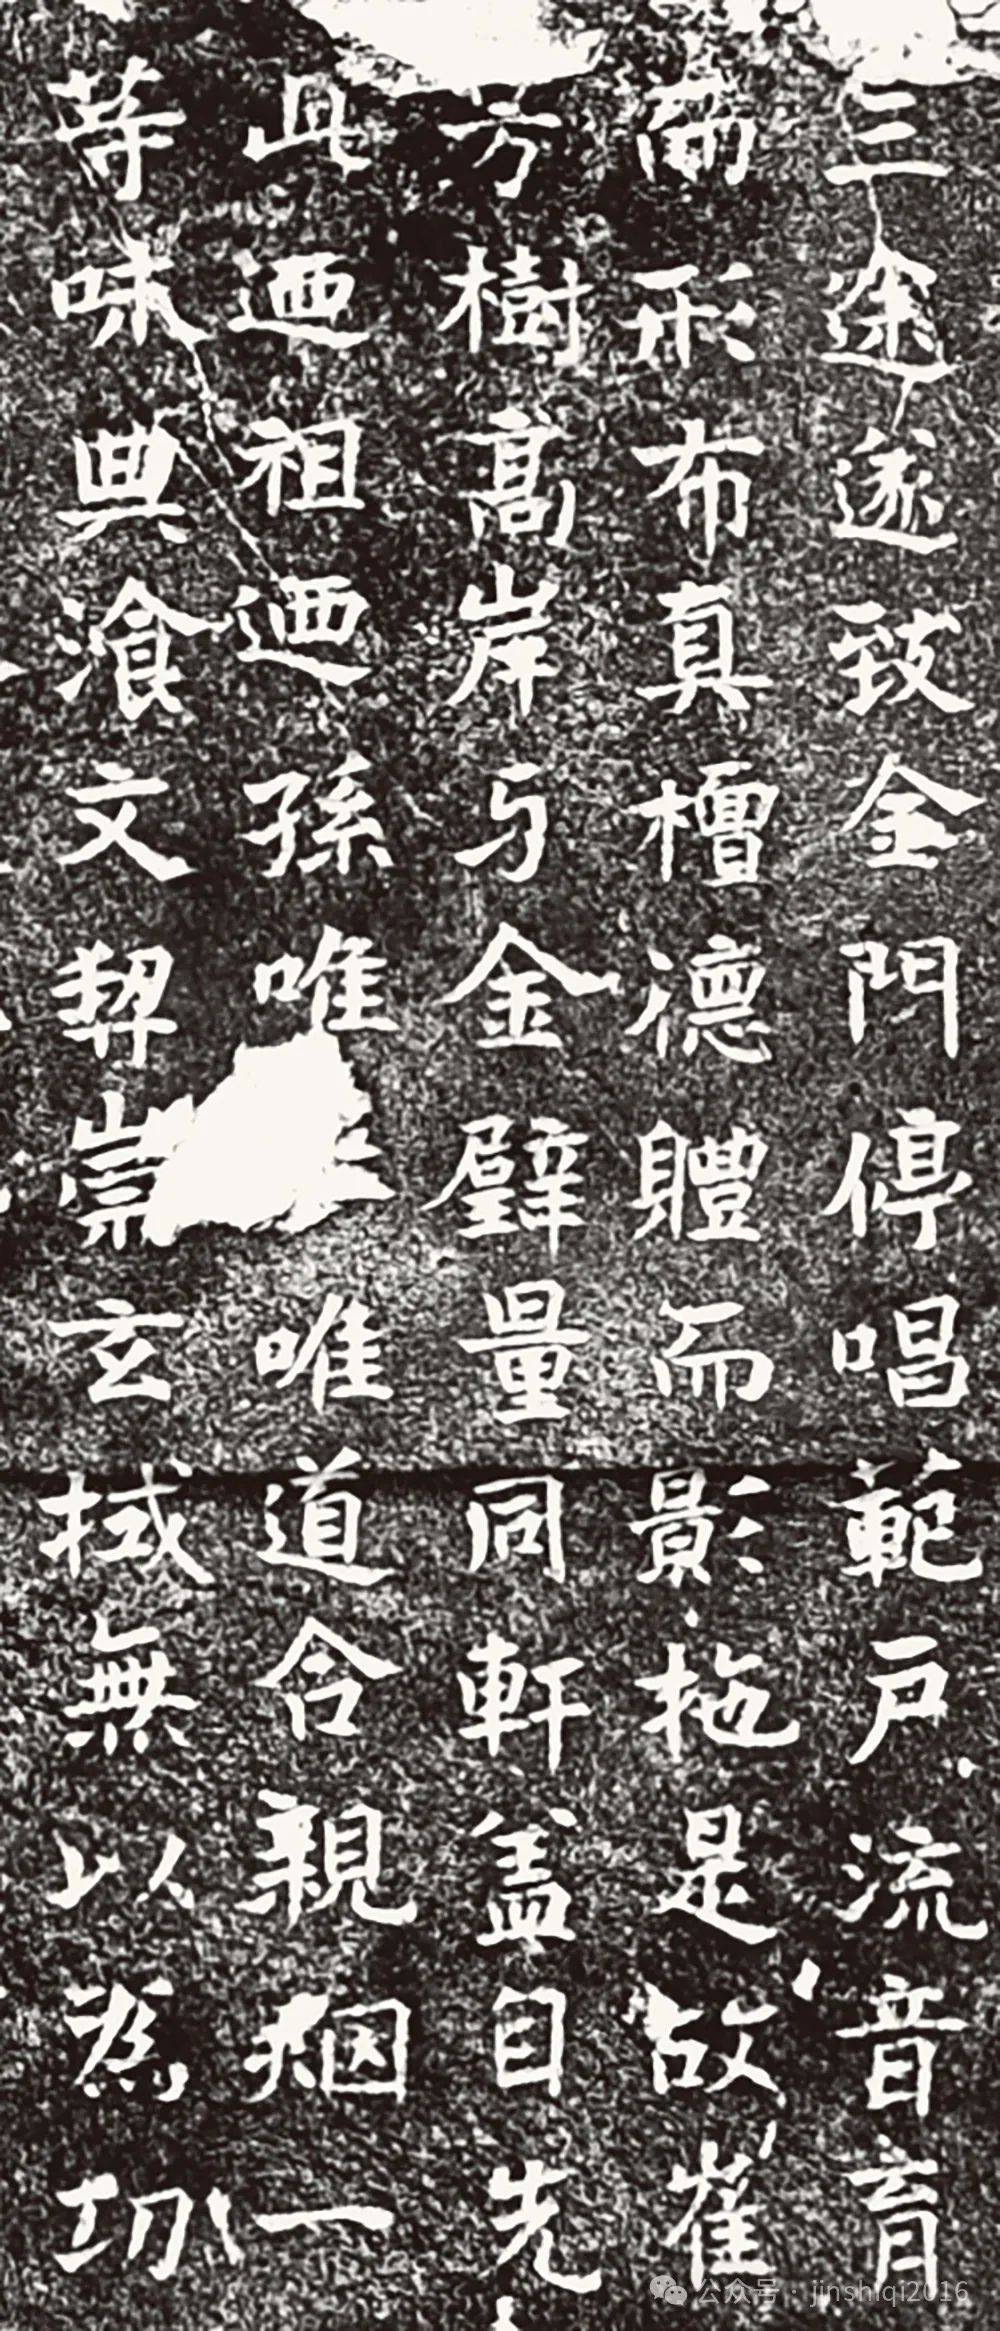 三途遂致金門停唱範戶流音育
形布真德體而影拖是故崔
方樹高岸金璧量同軒蓋目先
迺祖迺孫唯唯道親一
等味典湌文契崇玄無以為功
公众号：jinshiqi2016